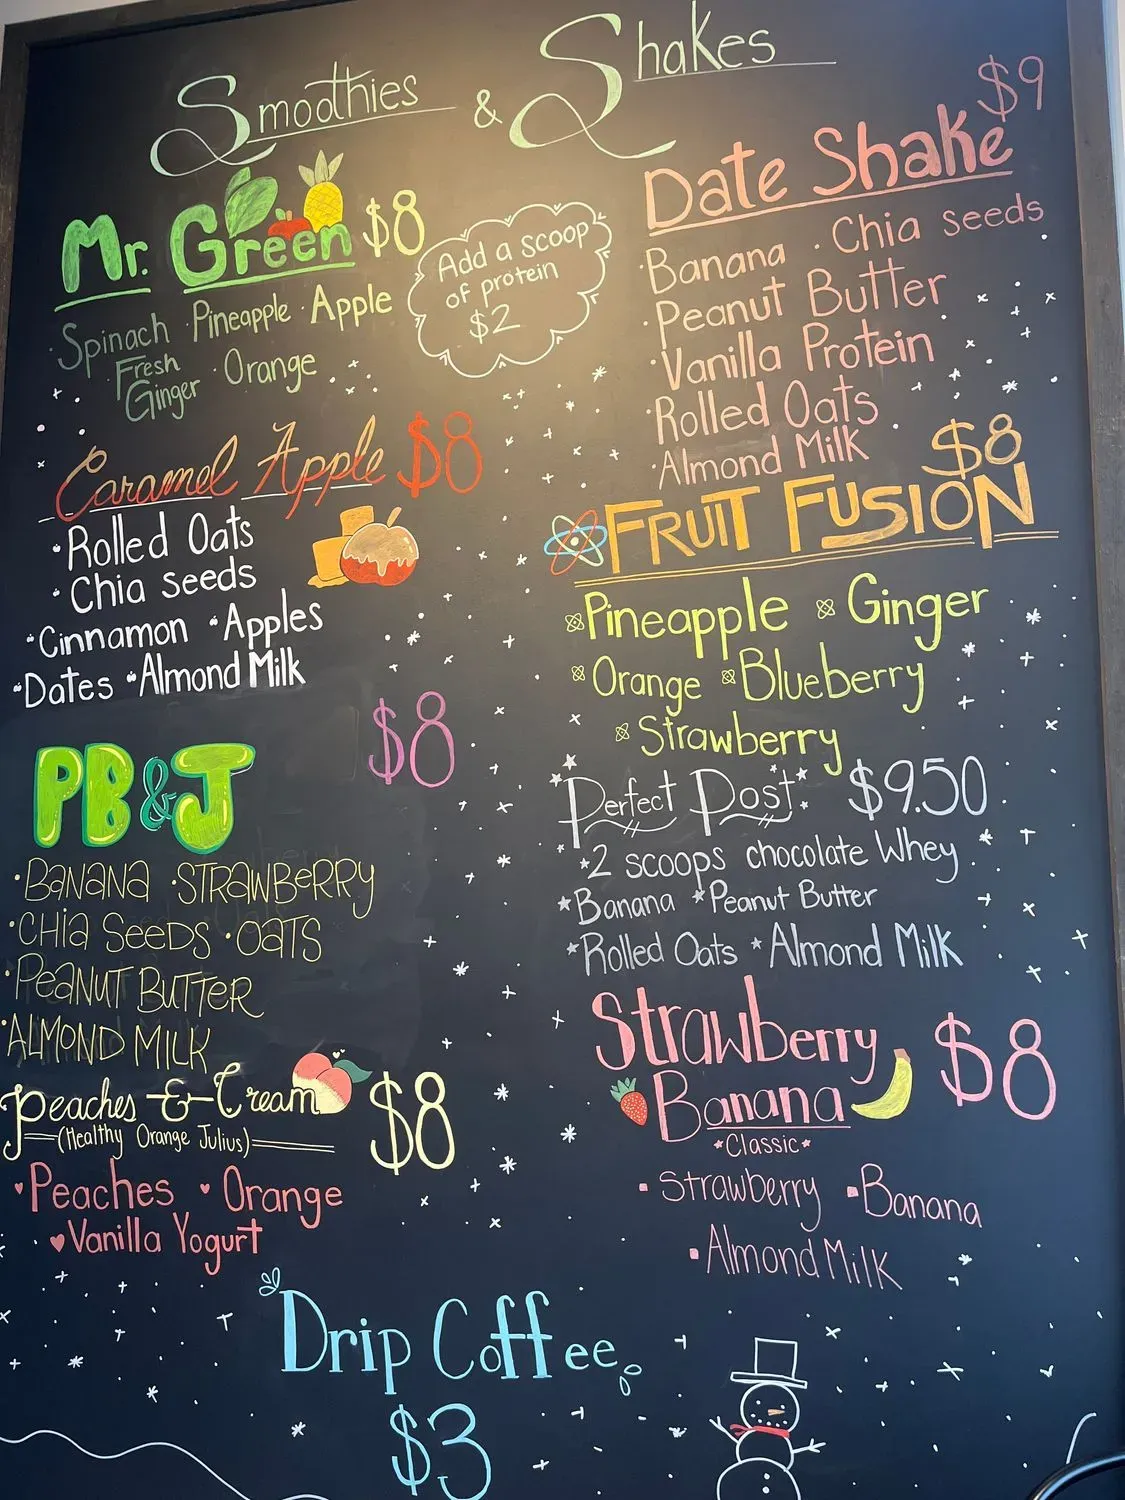 Smoothies & Shakes
Mr. Green $8
· Spinach · Pineapple · Apple
· Fresh Ginger · Orange
Add a scoop
of protein
$2
Caramel Apple $8
· Rolled Oats
· Chia seeds
· Cinnamon · Apples
· Dates · Almond Milk
$8
PB&J
· BANANA · STRAWBERRY
· CHIA SEEDS · OATS
· PEANUT BUTTER
· ALMOND MILK
Peaches & Cream $8
(Healthy Orange Julius)
♥ Peaches ♥ Orange
♥ Vanilla Yogurt
$9
Date Shake
· Banana · Chia seeds
· Peanut Butter
· Vanilla Protein
· Rolled Oats
· Almond Milk
$8
FRUIT FUSION
Pineapple Ginger
Orange Blueberry
Strawberry
Perfect Post $9.50
* 2 scoops chocolate Whey
* Banana * Peanut Butter
* Rolled Oats * Almond Milk
Strawberry
Banana $8
* Classic *
· Strawberry · Banana
· Almond Milk
Drip Coffee
$3